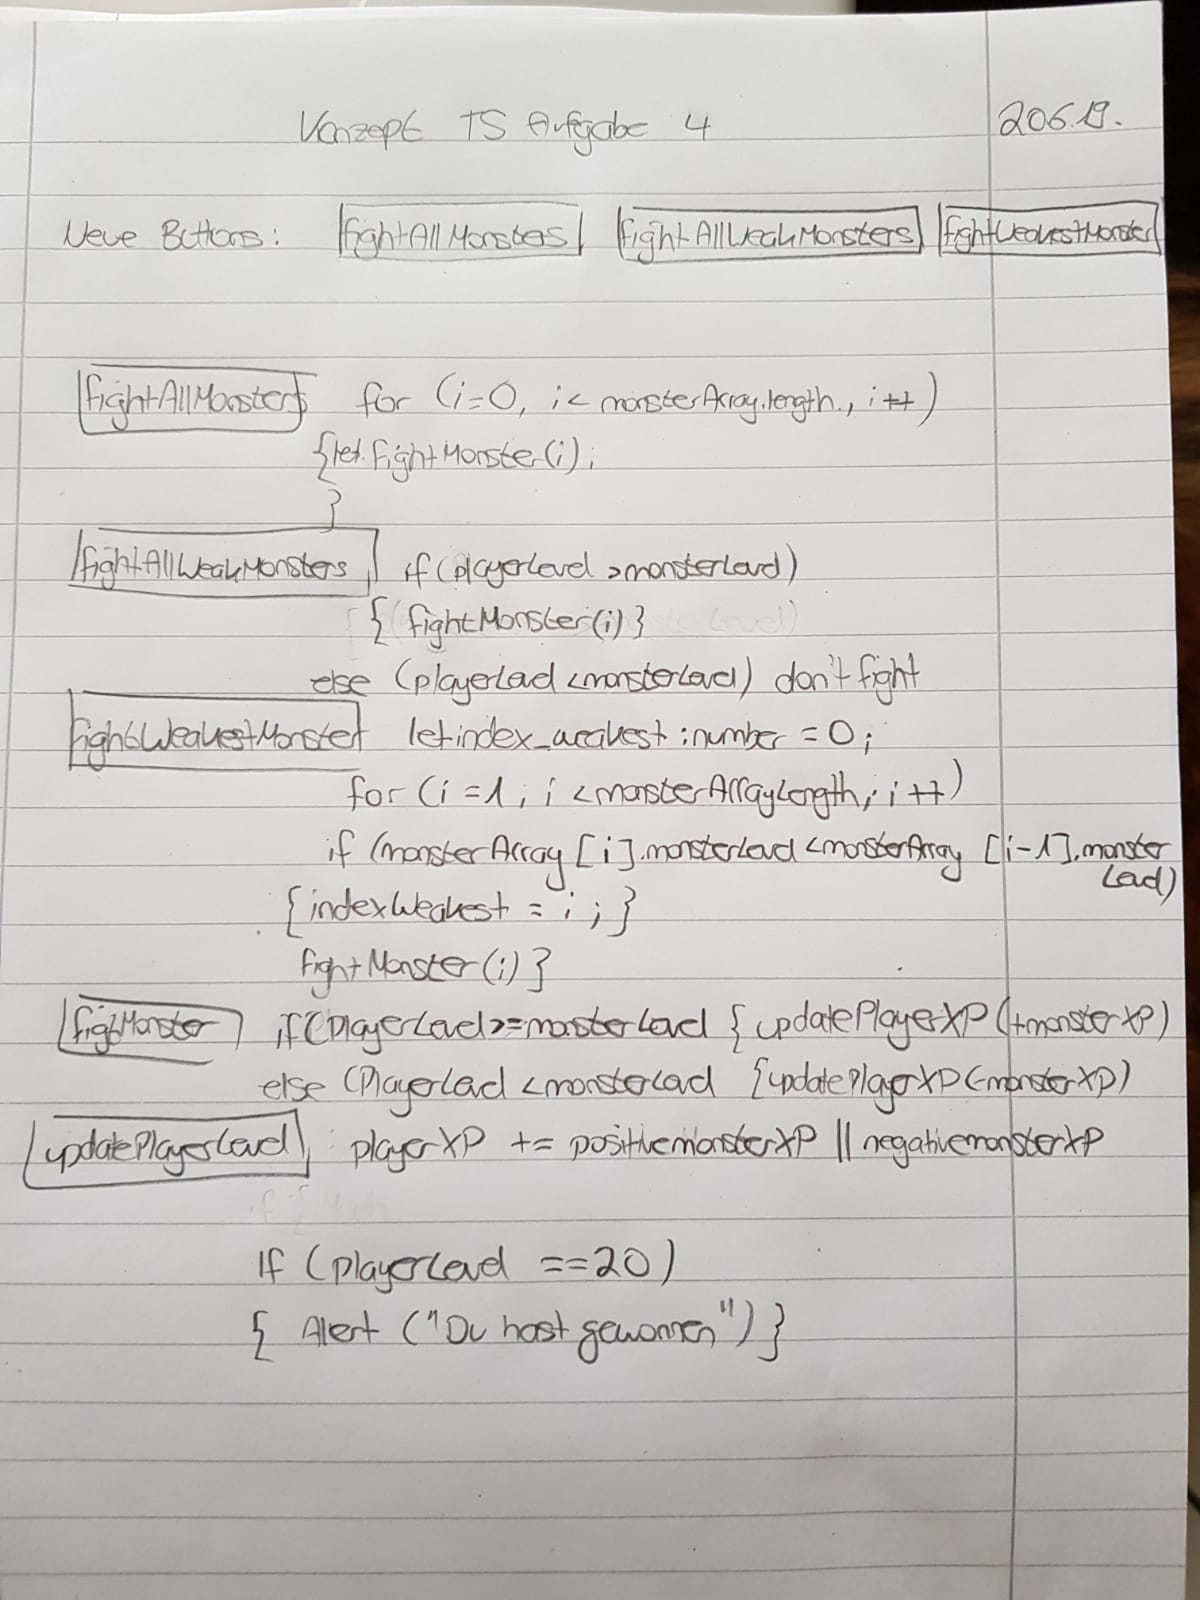 Konzept TS Aufgabe 4 20.6.19.
Neue Buttons: fightAllMonsters fightAllWeakMonsters fightWeakestMonster
fightAllMonsters for (i=0, i< monsterArray.length., i++)
{let.fightMonster(i);
}
fightAllWeakMonsters if (playerLevel >monsterLevel)
{ fightMonster(i)}
else (playerLevel <monsterLevel) don't fight
fightWeakestMonster let index_weakest : number = 0;
for (i =1; i <monsterArrayLength; i++)
if (monsterArray [i].monsterLevel <monsterArray [i-1].monster
Level)
{indexWeakest = i ; }
fightMonster(i)}
fightMonster if (PlayerLevel>=monsterLevel { updatePlayerXP (+monsterXP)
else (PlayerLevel <monsterLevel {updatePlayerXP (-monsterXP)
updatePlayerLevel : playerXP += positivemonsterXP || negativemonsterXP
If (playerLevel ==20)
{ Alert ("Du hast gewonnen") }